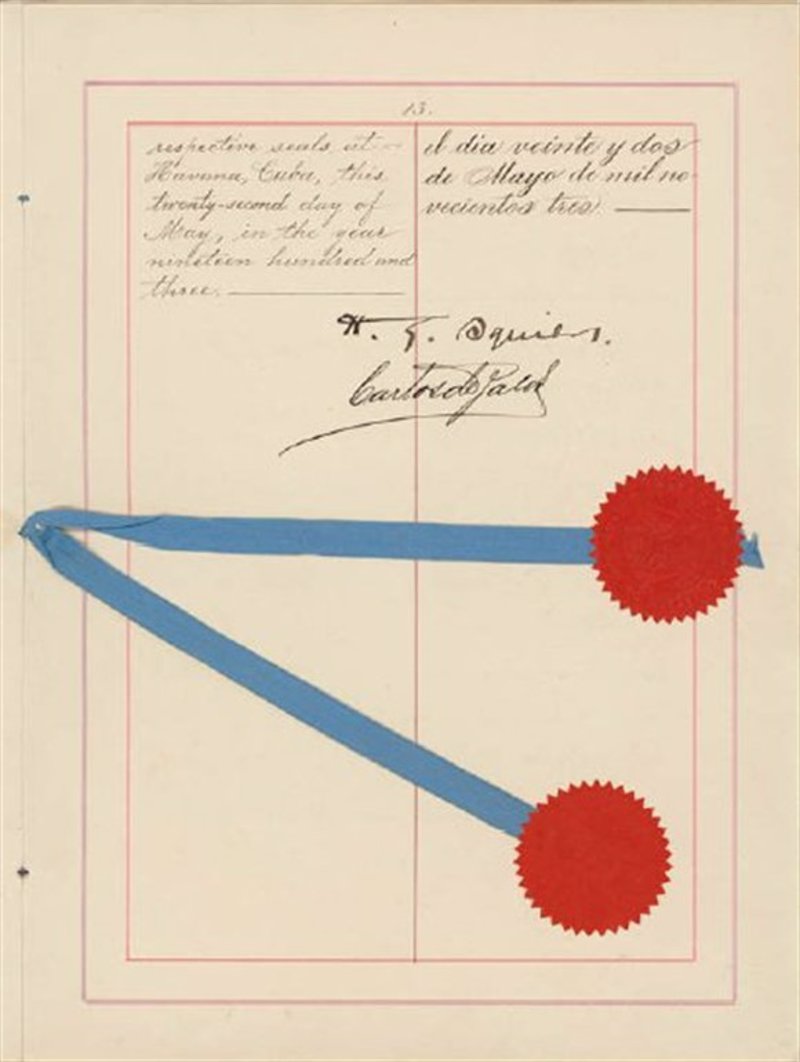 13.
respective seals at
Havana, Cuba, this
twenty-second day of
May, in the year
nineteen hundred and
three.
el día veinte y dos
de Mayo de mil no-
vecientos tres.
H. G. Squiers.
Carlos de Zaldo